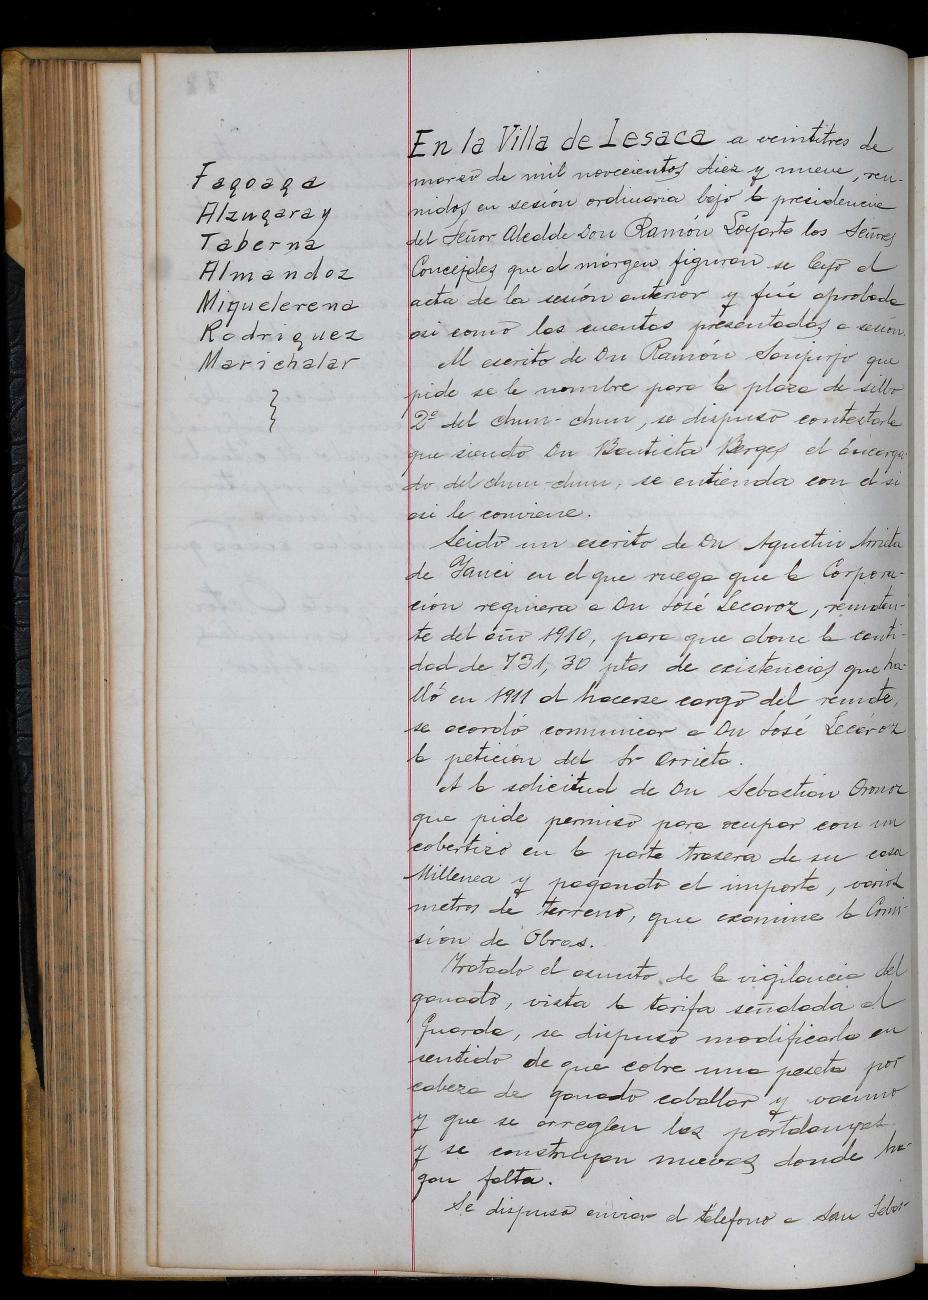 Fagoaga
Alzugaray
Taberna
Almandoz
Miquelerena
Rodriguez
Marichalar
En la Villa de Lesaca a veintitres de
marzo de mil novecientos diez y nueve, reu-
nidos en sesión ordinaria bajo la presidencia
del Señor Alcalde Don Ramón Goyarte los Señores
Concejales que al márgen figuran se leyó el
acta de la sesión anterior y fué aprobada
asi como las cuentas presentadas a sesión.
Al escrito de Dn Ramón que
pide se le nombre para la plaza de silbo
2º del chun-chun, se dispuso contestarle
que siendo Dn Bautista Berges el encarga-
do del chun-chun, se entienda con el si
asi le conviene.
Leido un escrito de Dn Agustin Arrieta
de Yanci en el que ruega que la Corpora-
ción requiera a Dn José Lecaroz, rematan-
te del año 1910, para que abone la canti-
dad de 731,30 ptas de existencias que ha-
lló en 1911 al hacerse cargo del remate,
se acordó comunicar a Dn José Lecároz
la petición del Sr Arrieta.
A la solicitud de Dn Sebastián Oronoz
que pide permiso para ocupar con un
cobertizo en la parte trasera de su casa
Millenea y pagando el importe, varios
metros de terreno, que examine la Comi-
sión de Obras.
Tratado el asunto de la vigilancia del
ganado, vista la tarifa señalada al
Guarda, se dispuso modificarla en
sentido de que cobre una peseta por
cabeza de ganado caballar y vacuno
y que se arreglen las
y se construyan nuevas donde ha-
gan falta.
Se dispuso enviar el teléfono a San Sebas-